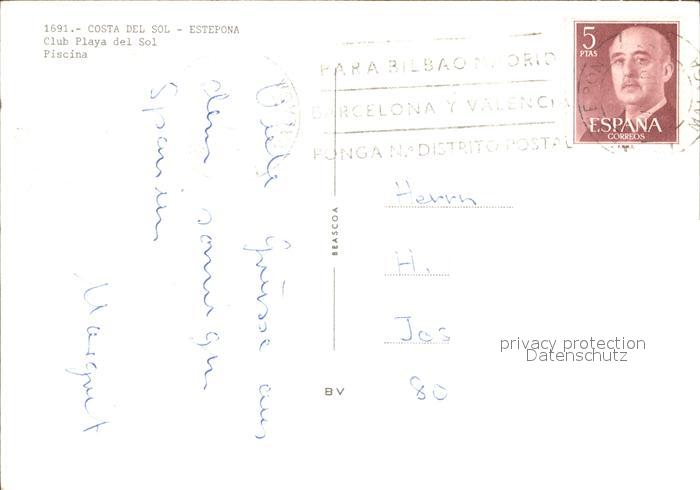 1691.- COSTA DEL SOL - ESTEPONA
Club Playa del Sol
Piscina
PARA BILBAO MADRID
BARCELONA Y VALENCIA
PONGA N.º DISTRITO POSTAL
5
PTAS
ESPAÑA
CORREOS
Viele Grüsse aus
dem sonnigen
Spanien
Margrit
BEASCOA
BV
Herrn
H.
Jos
80
privacy protection
Datenschutz